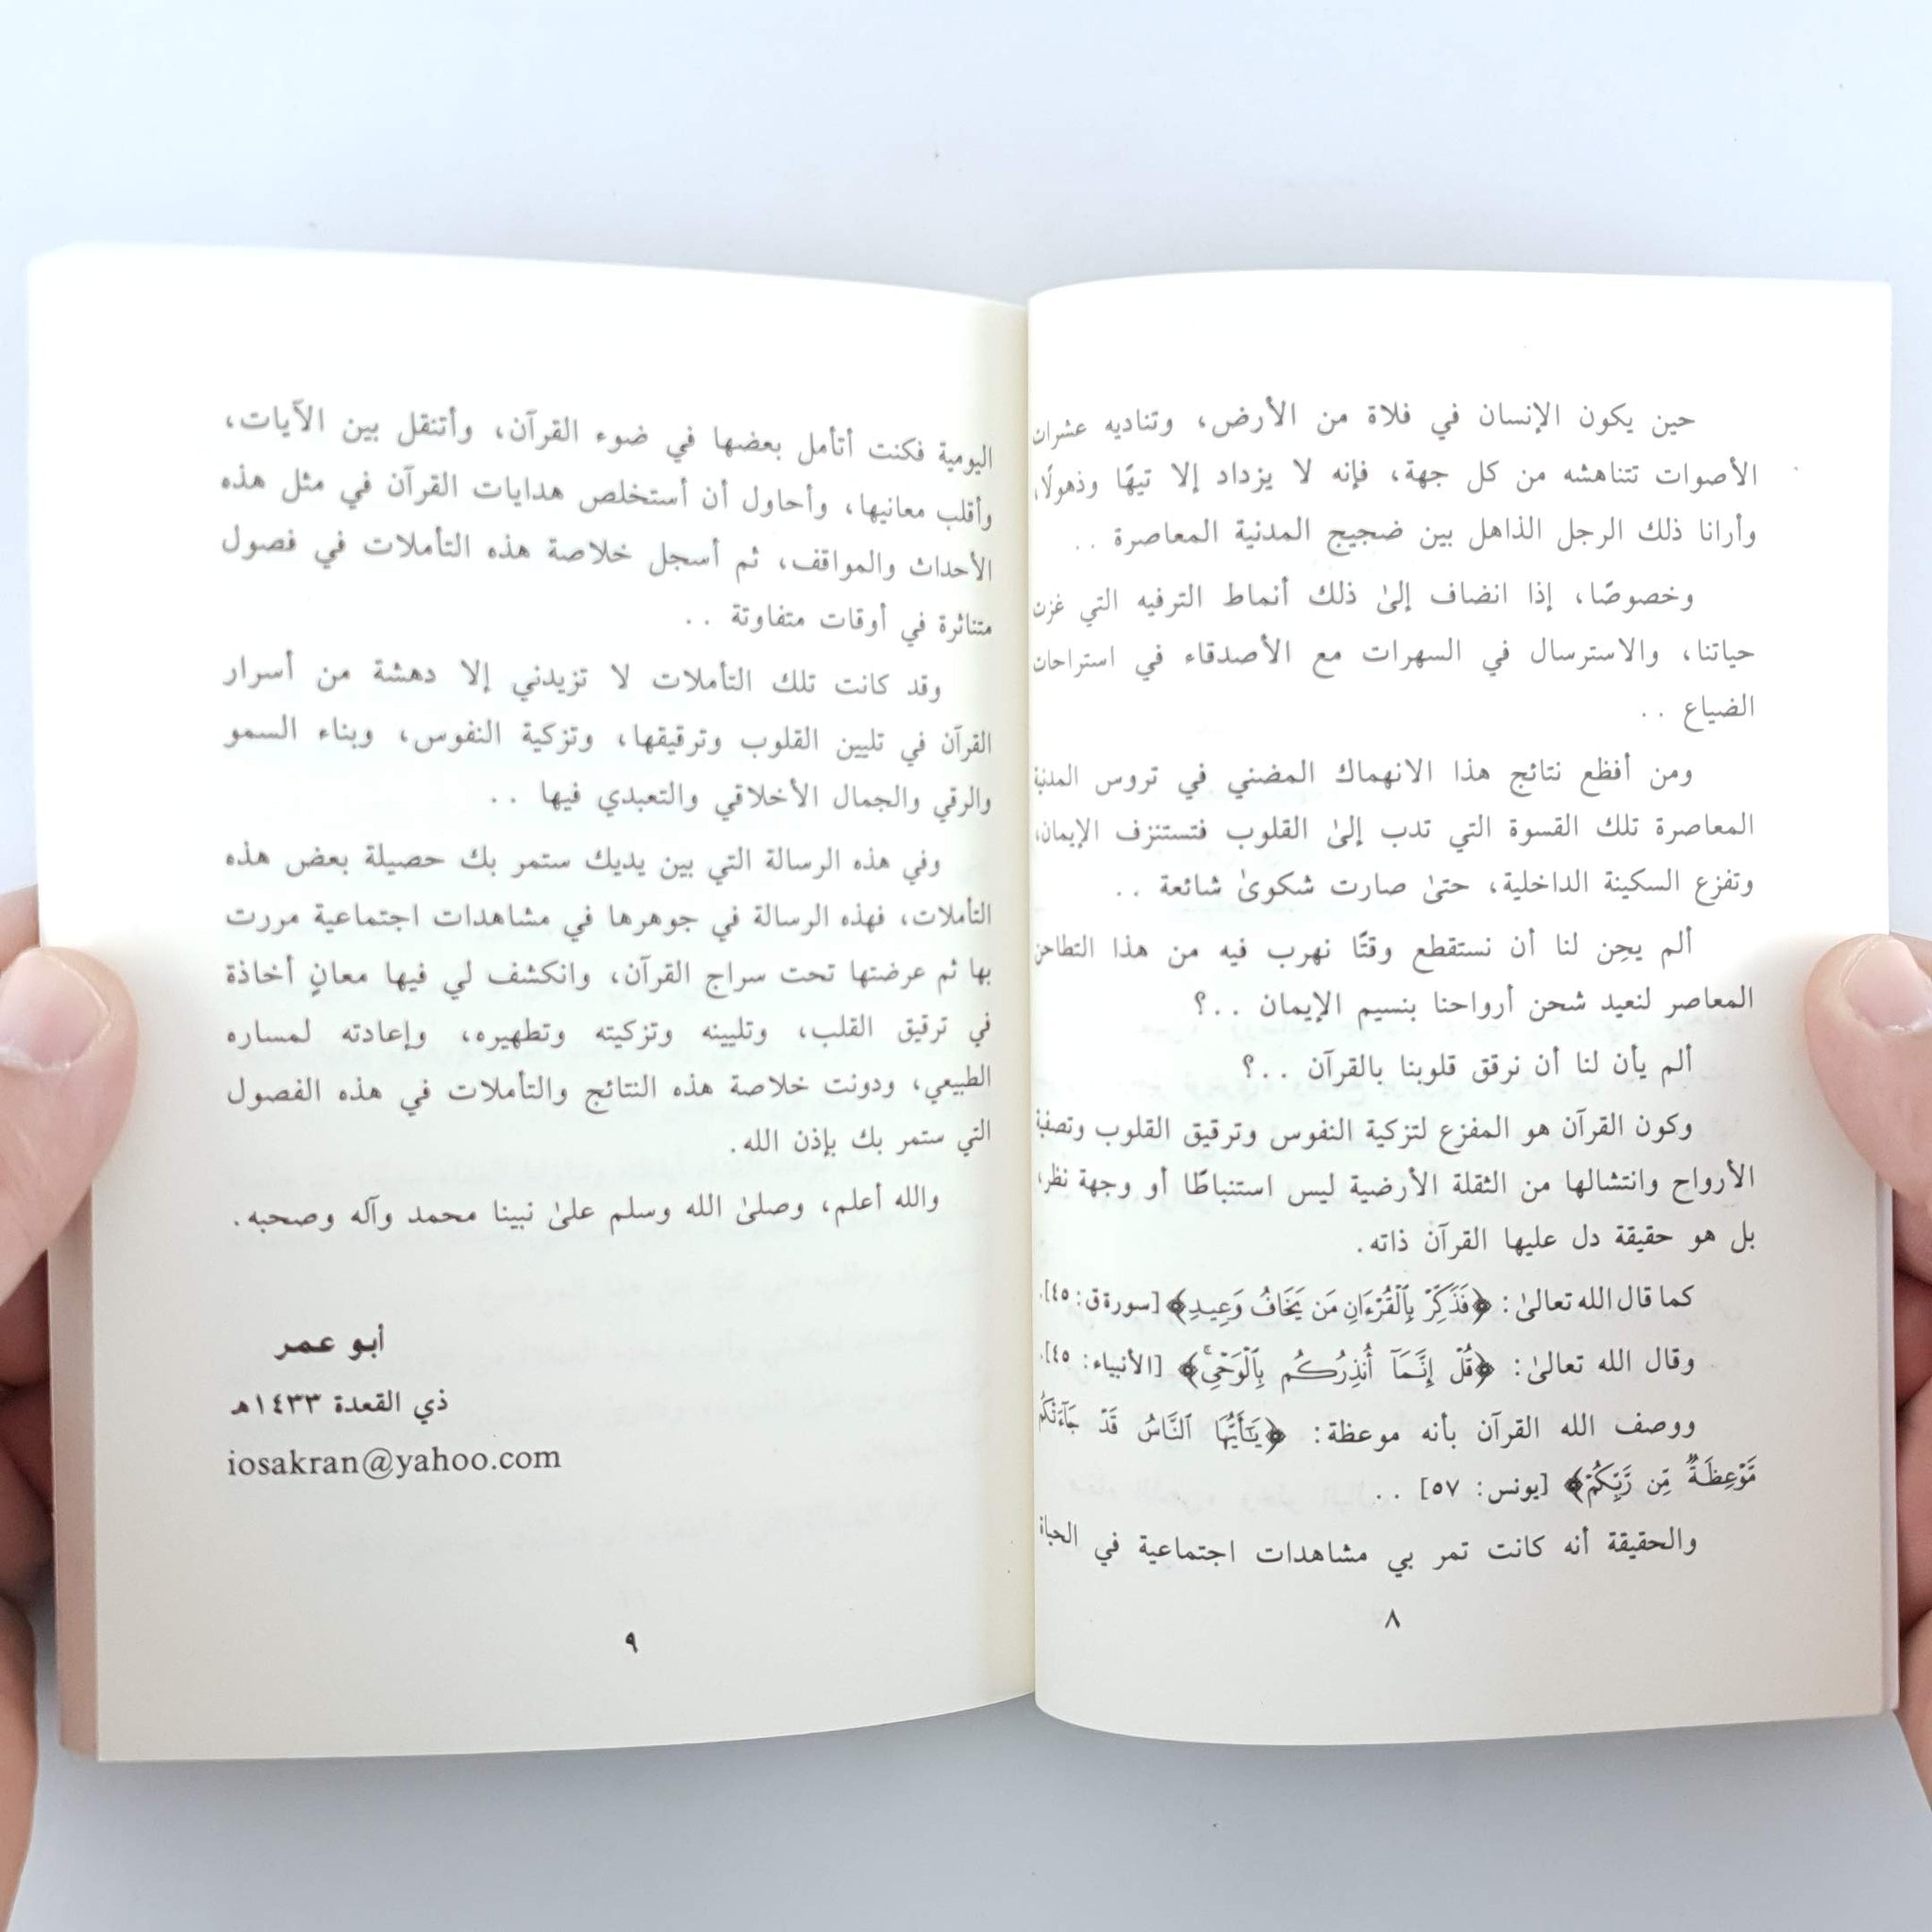 حين يكون الإنسان في فلاة من الأرض، وتناديه عشرات
الأصوات تتناهشه من كل جهة، فإنه لا يزداد إلا تيهًا وذهولًا،
وأرانا ذلك الرجل الذاهل بين ضجيج المدنية المعاصرة ..
وخصوصًا، إذا انضاف إلىٰ ذلك أنماط الترفيه التي غزت
حياتنا، والاسترسال في السهرات مع الأصدقاء في استراحات
الضياع ..
ومن أفظع نتائج هذا الانهماك المضني في تروس المدنية
المعاصرة تلك القسوة التي تدب إلىٰ القلوب فتستنزف الإيمان،
وتفزع السكينة الداخلية، حتىٰ صارت شكوىٰ شائعة ..
ألم يحِن لنا أن نستقطع وقتًا نهرب فيه من هذا التطاحن
المعاصر لنعيد شحن أرواحنا بنسيم الإيمان ..؟
ألم يأن لنا أن نرقق قلوبنا بالقرآن ..؟
وكون القرآن هو المفزع لتزكية النفوس وترقيق القلوب وتصفية
الأرواح وانتشالها من الثقلة الأرضية ليس استنباطًا أو وجهة نظر،
بل هو حقيقة دل عليها القرآن ذاته.
كما قال الله تعالىٰ: ﴿فَذَكِّرۡ بِٱلۡقُرۡءَانِ مَن يَخَافُ وَعِيدِ﴾ [سورة ق: ٤٥].
وقال الله تعالىٰ: ﴿قُلۡ إِنَّمَآ أُنذِرُكُم بِٱلۡوَحۡيِۚ﴾ [الأنبياء: ٤٥].
ووصف الله القرآن بأنه موعظة: ﴿يَٰٓأَيُّهَا ٱلنَّاسُ قَدۡ جَآءَتۡكُم
مَّوۡعِظَةٞ مِّن رَّبِّكُمۡ﴾ [يونس: ٥٧] ..
والحقيقة أنه كانت تمر بي مشاهدات اجتماعية في الحياة
٨
اليومية فكنت أتأمل بعضها في ضوء القرآن، وأتنقل بين الآيات،
وأقلب معانيها، وأحاول أن أستخلص هدايات القرآن في مثل هذه
الأحداث والمواقف، ثم أسجل خلاصة هذه التأملات في فصول
متناثرة في أوقات متفاوتة ..
وقد كانت تلك التأملات لا تزيدني إلا دهشة من أسرار
القرآن في تليين القلوب وترقيقها، وتزكية النفوس، وبناء السمو
والرقي والجمال الأخلاقي والتعبدي فيها ..
وفي هذه الرسالة التي بين يديك ستمر بك حصيلة بعض هذه
التأملات، فهذه الرسالة في جوهرها في مشاهدات اجتماعية مررت
بها ثم عرضتها تحت سراج القرآن، وانكشف لي فيها معانٍ أخاذة
في ترقيق القلب، وتليينه وتزكيته وتطهيره، وإعادته لمساره
الطبيعي، ودونت خلاصة هذه النتائج والتأملات في هذه الفصول
التي ستمر بك بإذن الله.
والله أعلم، وصلىٰ الله وسلم علىٰ نبينا محمد وآله وصحبه.
أبو عمر
ذي القعدة ١٤٣٣هـ
iosakran@yahoo.com
٩